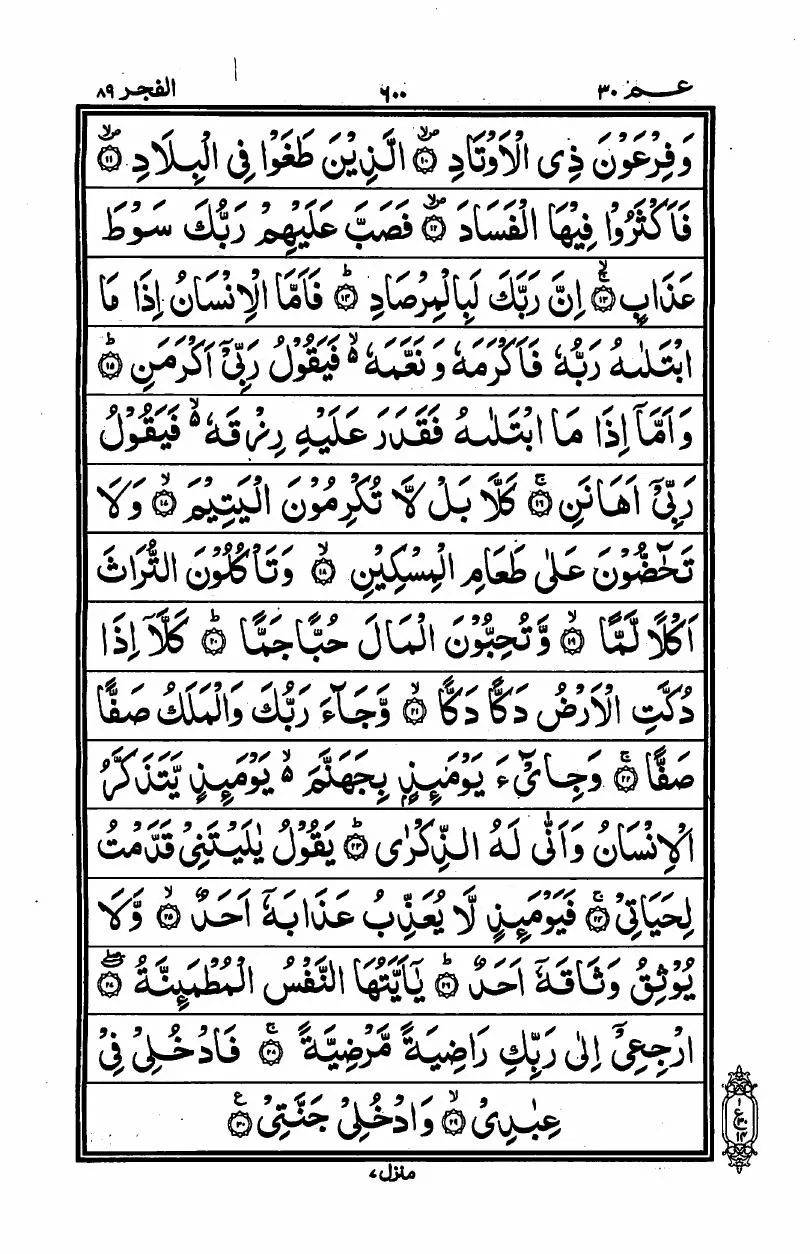 عـــم ٣٠ ٦٠٠ الفجر ٨٩
وَفِرْعَوْنَ ذِی الْاَوْتَادِ ۪ۙ﴿۱۰﴾ الَّذِیْنَ طَغَوْا فِی الْبِلَادِ ۪ۙ﴿۱۱﴾
فَاَكْثَرُوْا فِیْهَا الْفَسَادَ ۪ۙ﴿۱۲﴾ فَصَبَّ عَلَیْهِمْ رَبُّكَ سَوْطَ
عَذَابٍ ۚۙ﴿۱۳﴾ اِنَّ رَبَّكَ لَبِالْمِرْصَادِ ؕ﴿۱۴﴾ فَاَمَّا الْاِنْسَانُ اِذَا مَا
ابْتَلٰىهُ رَبُّهٗ فَاَكْرَمَهٗ وَ نَعَّمَهٗ ۙ۬ فَیَقُوْلُ رَبِّیْۤ اَكْرَمَنِ ؕ﴿۱۵﴾
وَ اَمَّاۤ اِذَا مَا ابْتَلٰىهُ فَقَدَرَ عَلَیْهِ رِزْقَهٗ ۙ۬ فَیَقُوْلُ
رَبِّیْۤ اَهَانَنِ ۚ﴿۱۶﴾ كَلَّا بَلْ لَّا تُكْرِمُوْنَ الْیَتِیْمَ ۙ﴿۱۷﴾ وَ لَا
تَحٰٓضُّوْنَ عَلٰى طَعَامِ الْمِسْكِیْنِ ۙ﴿۱۸﴾ وَ تَاْكُلُوْنَ التُّرَاثَ
اَكْلًا لَّمًّا ۙ﴿۱۹﴾ وَّ تُحِبُّوْنَ الْمَالَ حُبًّا جَمًّا ؕ﴿۲۰﴾ كَلَّاۤ اِذَا
دُكَّتِ الْاَرْضُ دَكًّا دَكًّا ۙ﴿۲۱﴾ وَّ جَآءَ رَبُّكَ وَ الْمَلَكُ صَفًّا
صَفًّا ۚ﴿۲۲﴾ وَ جِایْٓءَ یَوْمَىِٕذٍۭ بِجَهَنَّمَ ۙ۬ یَوْمَىِٕذٍ یَّتَذَكَّرُ
الْاِنْسَانُ وَ اَنّٰى لَهُ الذِّكْرٰى ؕ﴿۲۳﴾ یَقُوْلُ یٰلَیْتَنِیْ قَدَّمْتُ
لِحَیَاتِیْ ۚ﴿۲۴﴾ فَیَوْمَىِٕذٍ لَّا یُعَذِّبُ عَذَابَهٗۤ اَحَدٌ ۙ﴿۲۵﴾ وَّ لَا
یُوْثِقُ وَ ثَاقَهٗۤ اَحَدٌ ؕ﴿۲۶﴾ یٰۤاَیَّتُهَا النَّفْسُ الْمُطْمَىِٕنَّةُ ۗۖ﴿۲۷﴾
ارْجِعِیْۤ اِلٰى رَبِّكِ رَاضِیَةً مَّرْضِیَّةً ۚ﴿۲۸﴾ فَادْخُلِیْ فِیْ
عِبٰدِیْ ۙ﴿۲۹﴾ وَ ادْخُلِیْ جَنَّتِیْ ۠﴿۳۰﴾
۱
ع ۳۰
۱۴
منزل ۷